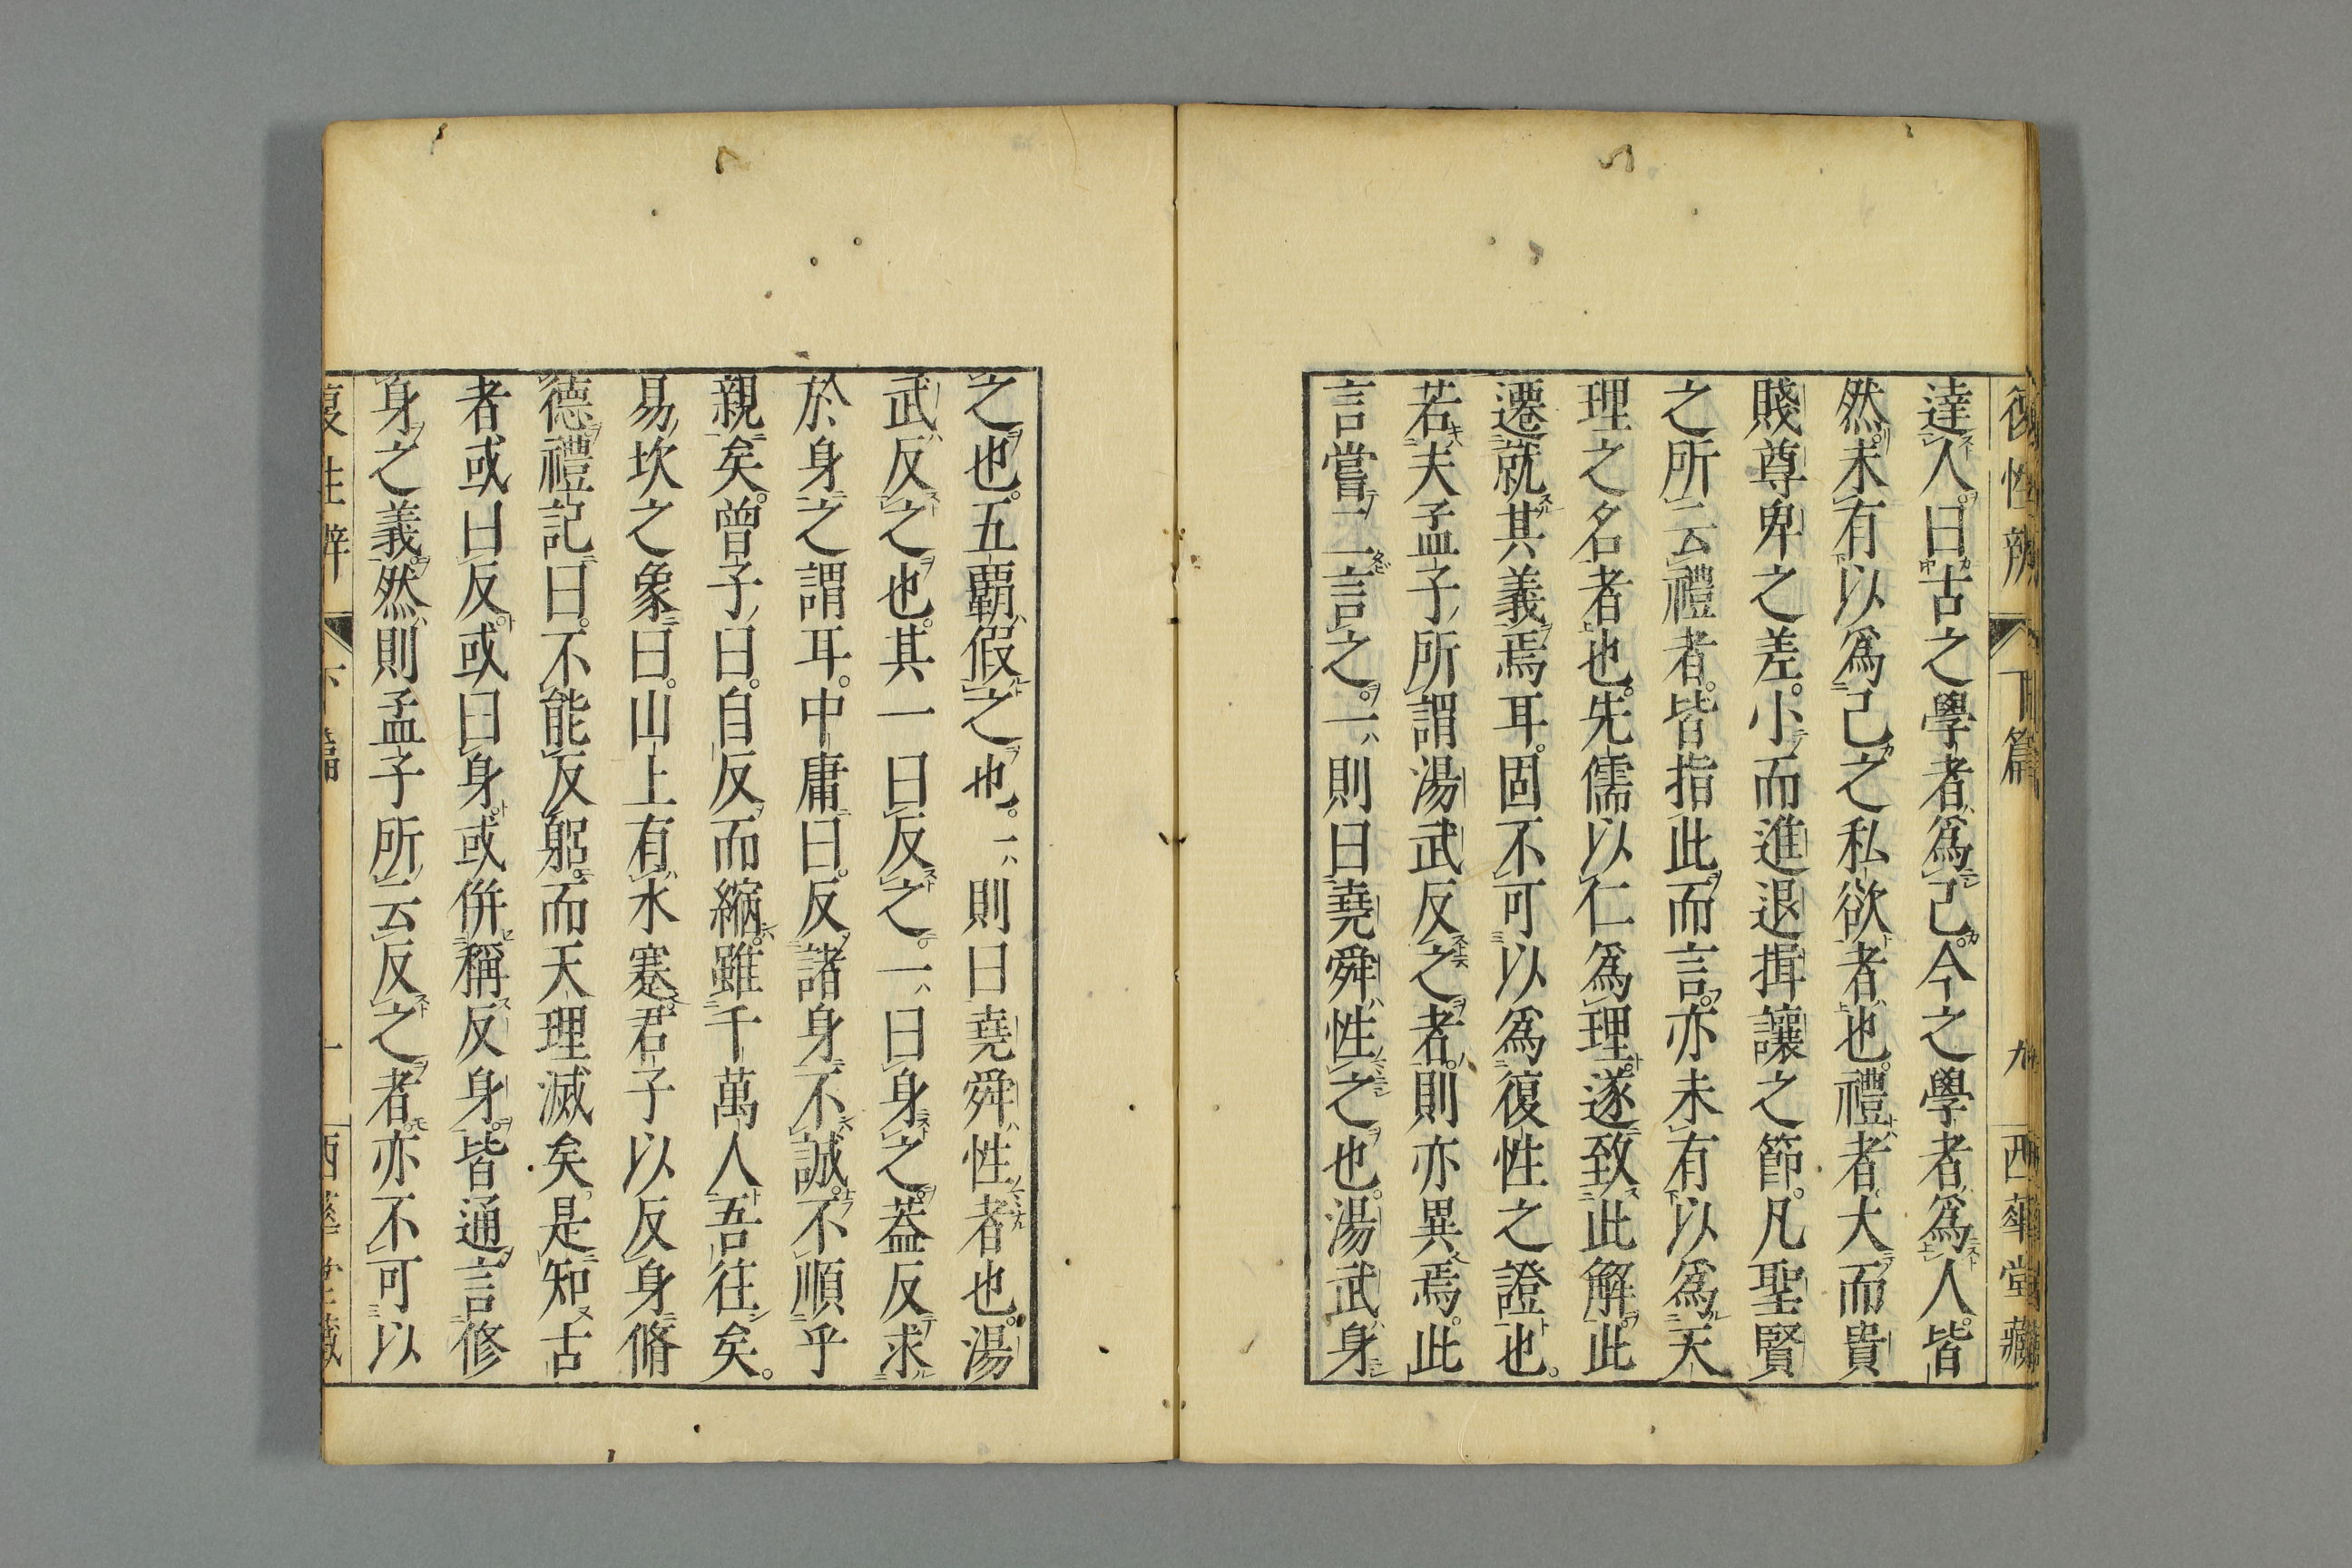 復性辨 下篇 九 西華堂藏
達人。曰古之學者爲己。今之學者爲人。皆
然。未有以爲己之私欲者也。禮者大而貴
賤尊卑之差。小而進退揖讓之節。凡聖賢
之所云禮者。皆指此而言。亦未有以爲天
理之名者也。先儒以仁爲理。遂致此解。此
遷就其義焉耳。固不可以爲復性之證也。
若夫孟子所謂湯武反之者。則亦異焉。此
言嘗二言之。一則曰堯舜性之也。湯武身
之也。五覇假之也。一則曰堯舜性者也。湯
武反之也。其一曰反之。一曰身之。葢反求
於身之謂耳。中庸曰。反諸身不誠。不順乎
親矣。曾子曰。自反而縮。雖千萬人吾往矣。
易坎之象曰。山上有水蹇。君子以反身脩
德。禮記曰。不能反躬。而天理滅矣。是知古
者或曰反。或曰身。或併稱反身。皆通言修
身之義。然則孟子所云反之者。亦不可以
復性辨 下篇 西華堂藏